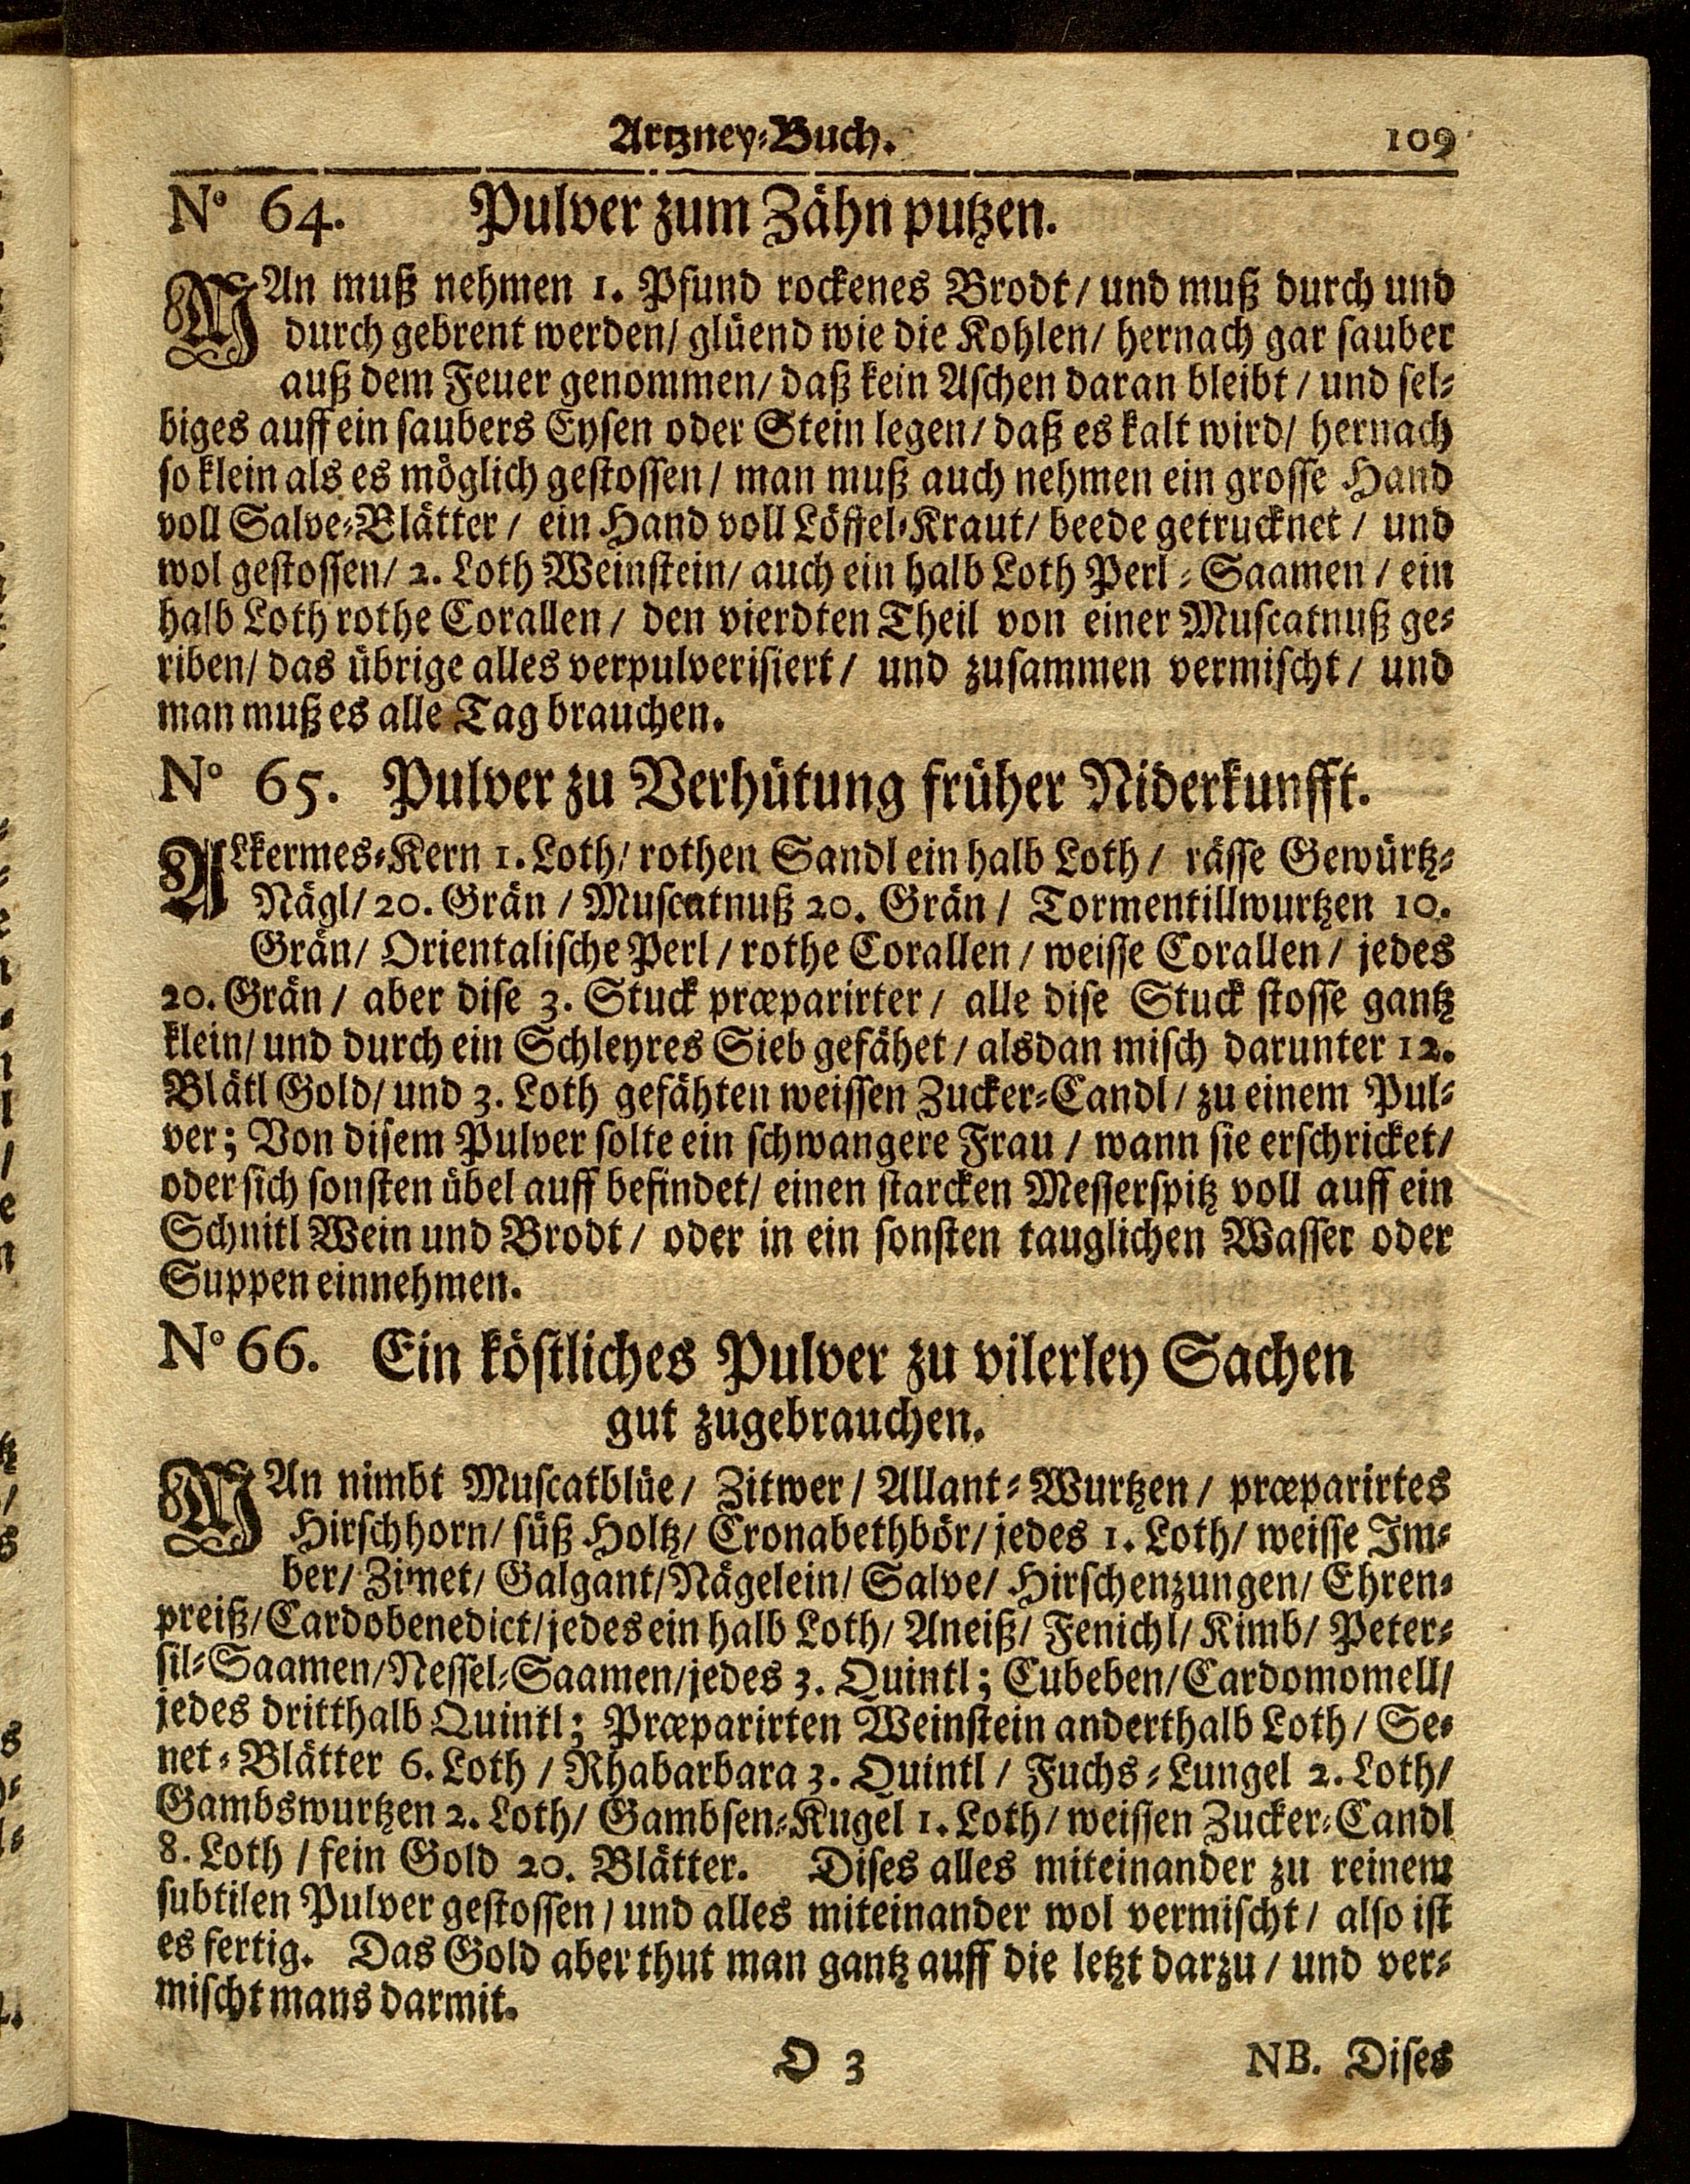 Artzney-Buch. 109
No 64. Pulver zum Zähn putzen.
MAn muß nehmen 1. Pfund rockenes Brodt / und muß durch und
durch gebrent werden / glüend wie die Kohlen / hernach gar sauber
auß dem Feuer genommen / daß kein Aschen daran bleibt / und sel-
biges auff ein saubers Eysen oder Stein legen / daß es kalt wird / hernach
so klein als es möglich gestossen / man muß auch nehmen ein grosse Hand
voll Salve-Blätter / ein Hand voll Löffel-Kraut / beede getrucknet / und
wol gestossen / 2. Loth Weinstein / auch ein halb Loth Perl-Saamen / ein
halb Loth rothe Corallen / den vierdten Theil von einer Muscatnuß ge-
riben / das übrige alles verpulverisiert / und zusammen vermischt / und
man muß es alle Tag brauchen.
No 65. Pulver zu Verhütung früher Niderkunfft.
ALkermes-Kern 1. Loth / rothen Sandl ein halb Loth / rässe Gewürtz-
Nägl / 20. Grän / Muscatnuß 20. Grän / Tormentillwurtzen 10.
Grän / Orientalische Perl / rothe Corallen / weisse Corallen / jedes
20. Grän / aber dise 3. Stuck præparirter / alle dise Stuck stosse gantz
klein / und durch ein Schleyres Sieb gefähet / alsdan misch darunter 12.
Blätl Gold / und 3. Loth gefähten weissen Zucker-Candl / zu einem Pul-
ver; Von disem Pulver solte ein schwangere Frau / wann sie erschricket /
oder sich sonsten übel auff befindet / einen starcken Messerspitz voll auff ein
Schnitl Wein und Brodt / oder in ein sonsten tauglichen Wasser oder
Suppen einnehmen.
No 66. Ein köstliches Pulver zu vilerley Sachen
gut zugebrauchen.
MAn nimbt Muscatblüe / Zitwer / Allant-Wurtzen / præparirtes
Hirschhorn / süß Holtz / Cronabethbör / jedes 1. Loth / weisse Im-
ber / Zimet / Galgant / Nägelein / Salve / Hirschenzungen / Ehren-
preiß / Cardobenedict / jedes ein halb Loth / Aneiß / Fenichl / Kimb / Peter-
sil-Saamen / Nessel-Saamen / jedes 3. Quintl; Cubeben / Cardomomell /
jedes dritthalb Quintl; Præparirten Weinstein anderthalb Loth / Se-
net-Blätter 6. Loth / Rhabarbara 3. Quintl / Fuchs-Lungel 2. Loth /
Gambswurtzen 2. Loth / Gambsen-Kugel 1. Loth / weissen Zucker-Candl
8. Loth / fein Gold 20. Blätter. Dises alles miteinander zu reinem
subtilen Pulver gestossen / und alles miteinander wol vermischt / also ist
es fertig. Das Gold aber thut man gantz auff die letzt darzu / und ver-
mischt mans darmit.
O 3 NB. Dises